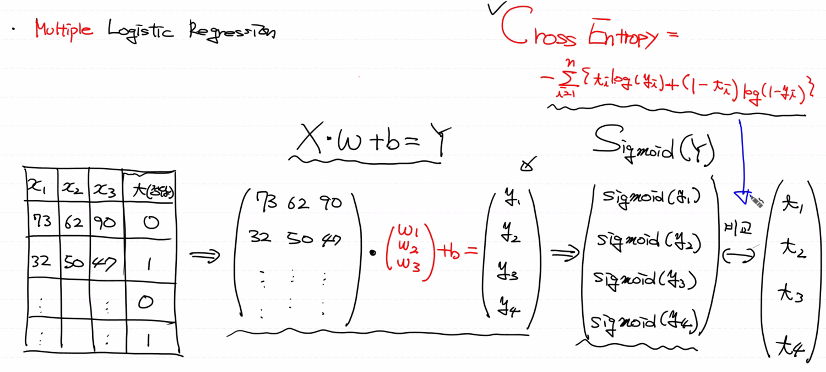 · Multiple Logistic Regression
✓ Cross Entropy =
-∑ⁿᵢ₌₁{tᵢlog(yᵢ)+(1-tᵢ)log(1-yᵢ)}
X·w+b=Y
Sigmoid(Y)
x₁ x₂ x₃ t(정답)
73 62 90 0
32 50 47 1
⋮ ⋮ 0
⋮ ⋮ 1
⇒
73 62 90
32 50 47
⋮ ⋮ ⋮
· (w₁ w₂ w₃) +b =
y₁
y₂
y₃
y₄
⇒
sigmoid(y₁)
sigmoid(y₂)
sigmoid(y₃)
sigmoid(y₄)
비교
↔
t₁
t₂
t₃
t₄